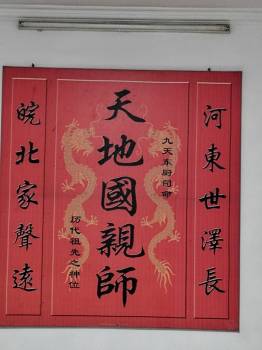 河東世澤長
九天东厨司命
天地國親師
历代祖先之神位
皖北家聲遠